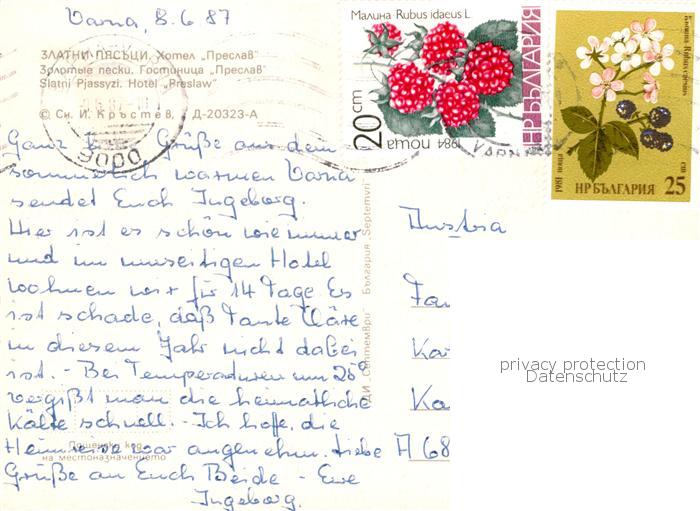 Varna, 8.6.87
ЗЛАТНИ ПЯСЪЦИ. Хотел „Преслав"
Золотые пески. Гостиница „Преслав"
Slatni Pjassyzi. Hotel „Preslaw"
© Сн. И. Кръстев, Д-20323-А
9000
Ganz Grüße aus dem
sommerlich warmen Varna
sendet Euch Ingeborg.
Hier ist es schön wie immer
und im Hotel
wohnen wir für 14 Tage. Es
ist schade, daß Tante Kläre
in diesem Jahr nicht dabei
ist. - Bei Temperaturen um 26°
vergißt man die heimatliche
Kälte schnell. - Ich hoffe, die
Heimreise war angenehm. Liebe
Grüße an Euch Beide - Eure
Ingeborg.
Пощенски код
на местоназначението
ДИ „Септември" България Septemvri
Малина · Rubus idaeus L.
20 cm
1984 поща
НР БЪЛГАРИЯ
VARNA
1981 поща
НР БЪЛГАРИЯ
25 cm
Austria
Fa
Ka
Ka
A 68
privacy protection
Datenschutz